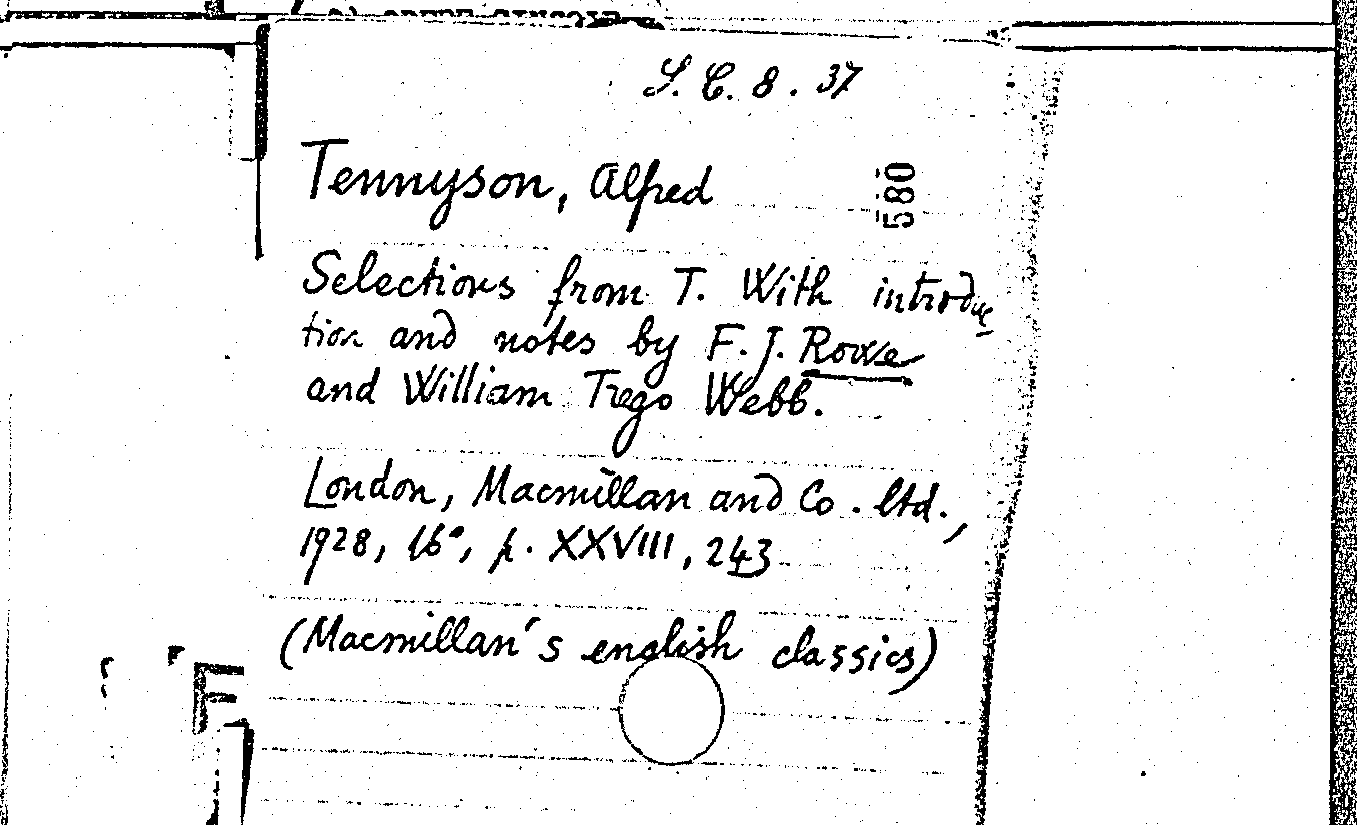 S. C. 8. 37
580
Tennyson, Alfred
Selections from T. With introduc
tion and notes by F. J. Rowe
and William Trego Webb.
London, Macmillan and Co. Ltd.,
1928, 16°, p. XXVIII, 243
(Macmillan's english classics)